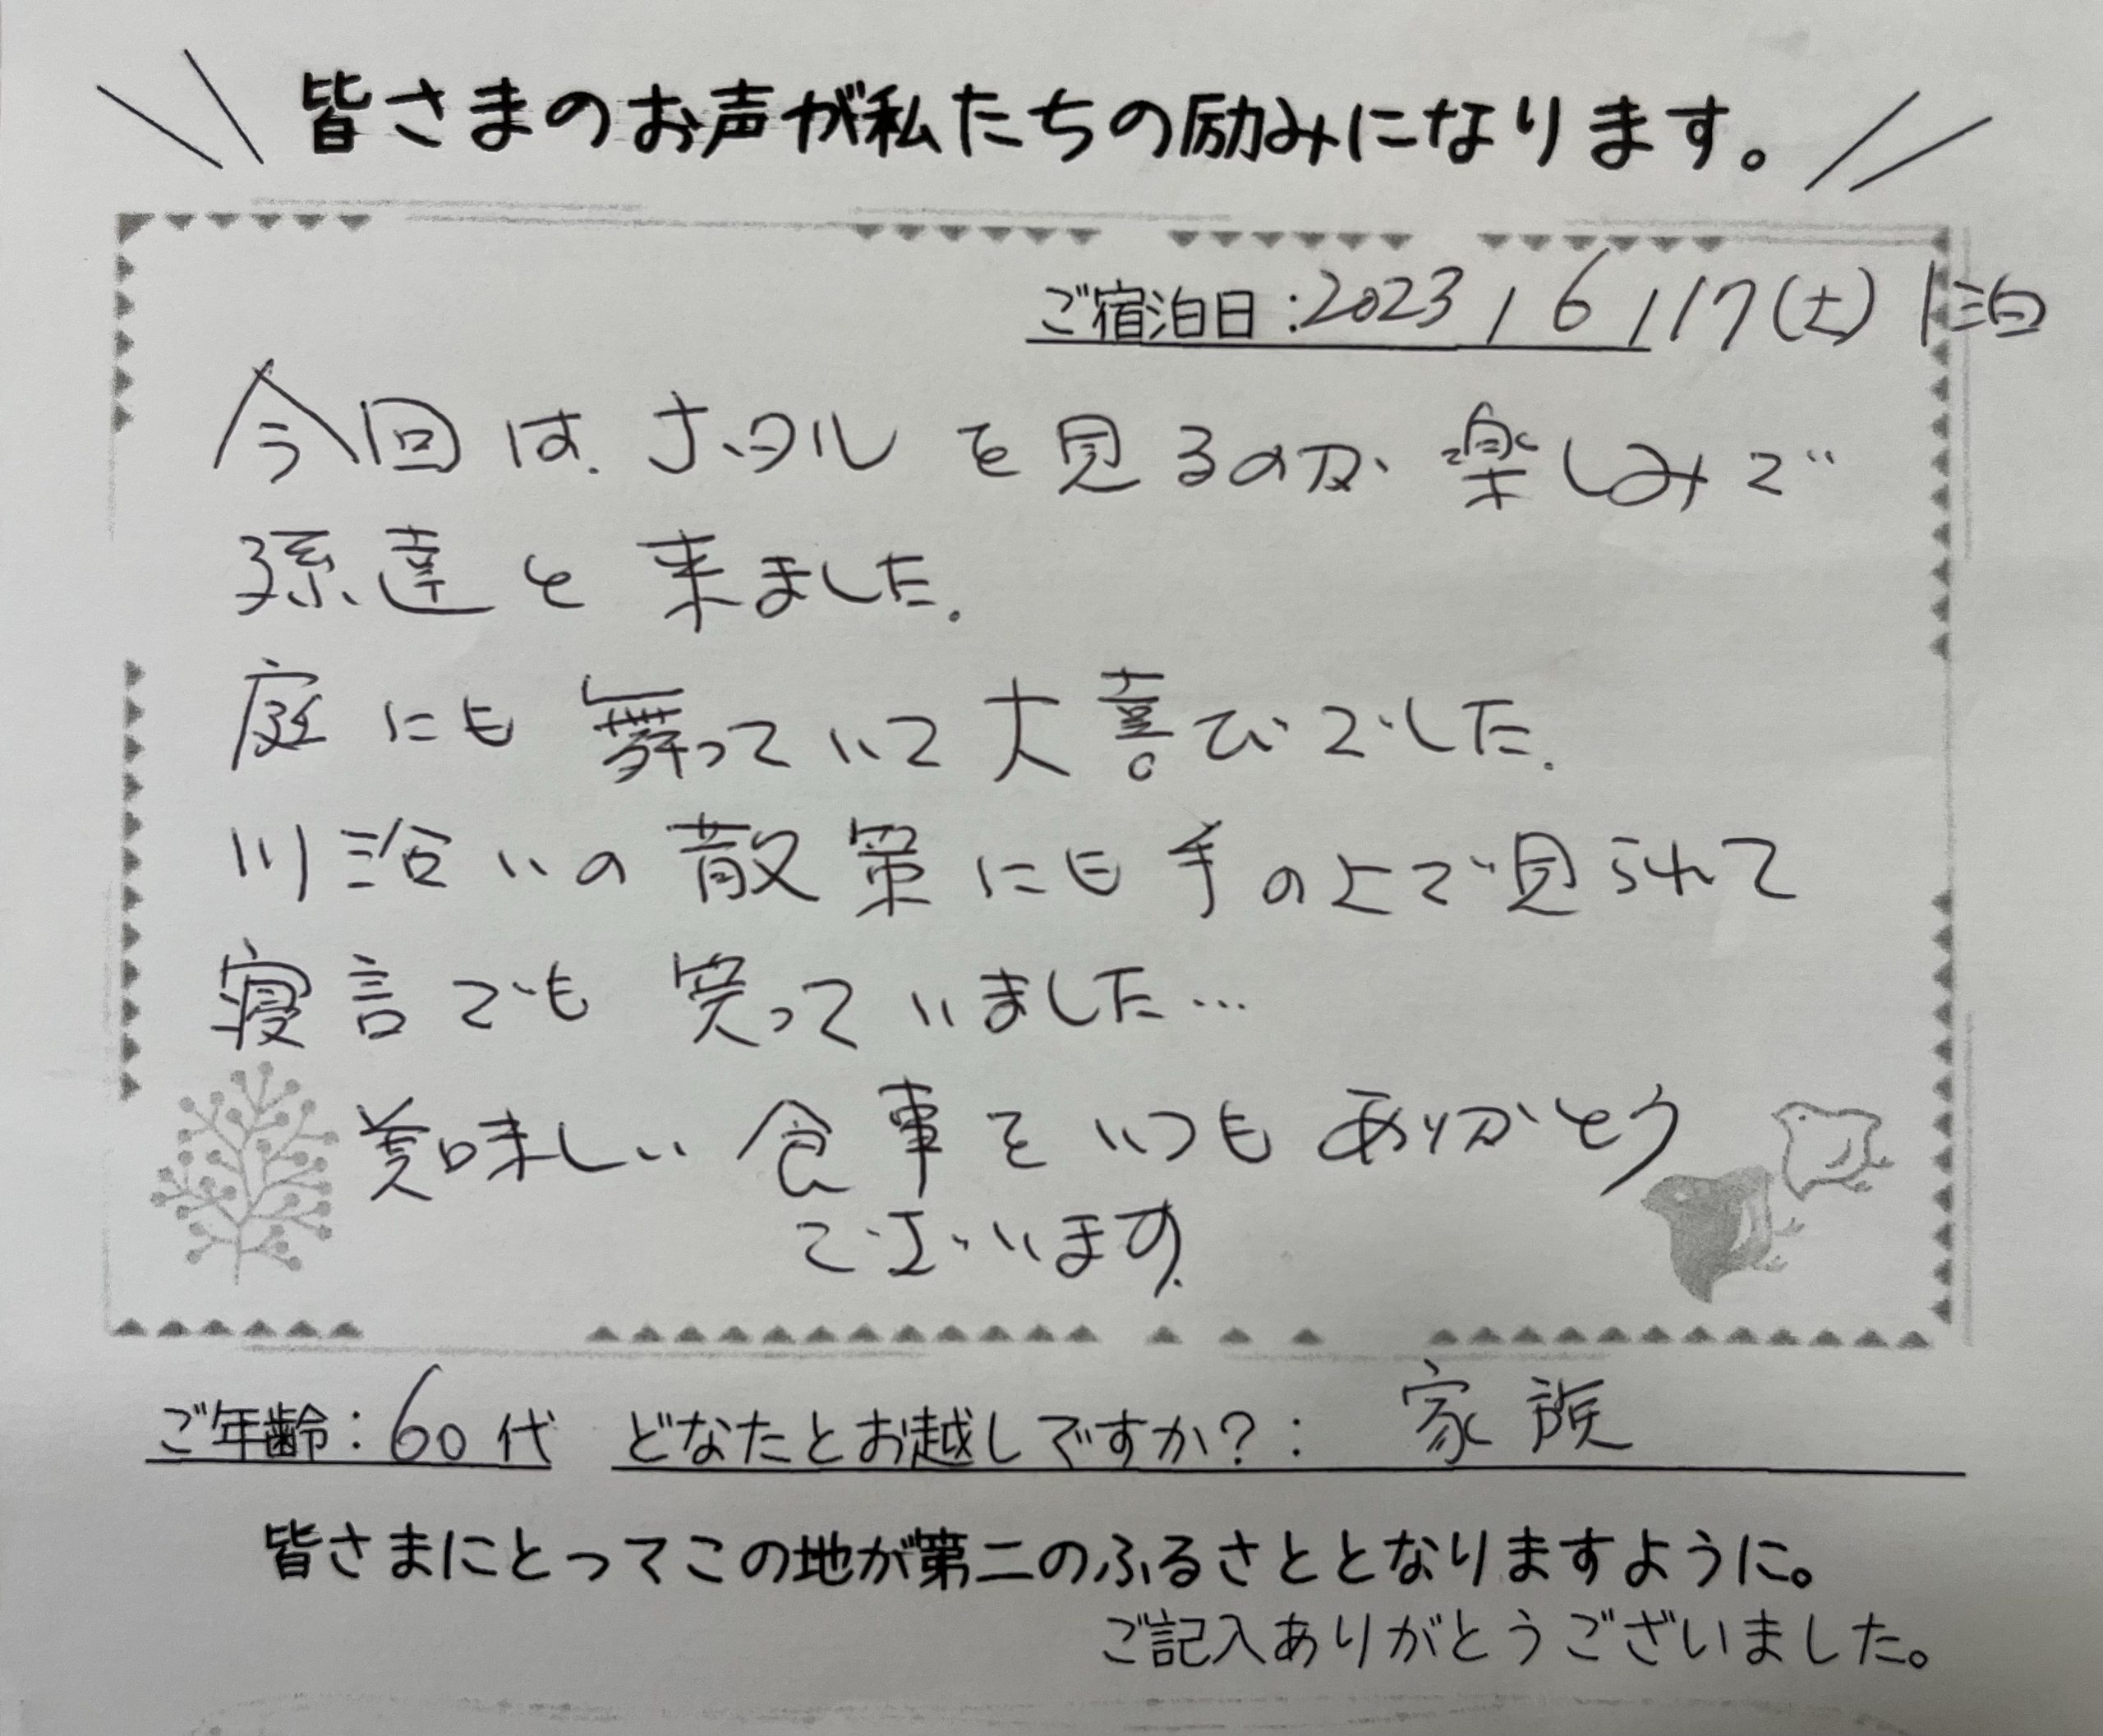 皆さまのお声が私たちの励みになります。
ご宿泊日:2023/6/17(土)1泊
今回は、ホタルを見るのが楽しみで
孫達と来ました.
庭にも舞っていて大喜びでした.
川沿いの散策にも手の上で見られて
寝言でも笑っていました…
美味しい食事をいつもありがとう
ございます.
ご年齢:60代 どなたとお越しですか?: 家族
皆さまにとってこの地が第二のふるさととなりますように。
ご記入ありがとうございました。